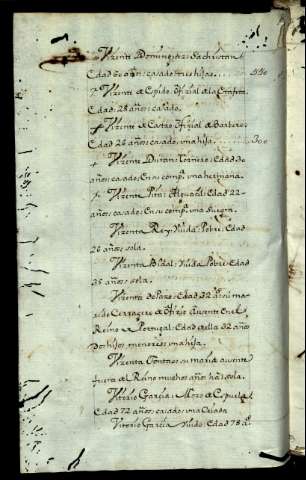 Vizente Dominguez: Sachristan
Edad 60 años: casado tres hijas. 550
+ Vizente de Cepido Ofizial de la Estafeta
Edad: 28 años: casado.
+ Vizente de Castro Ofizial de Barbero:
Edad 26 años: casado, una hija. 300
+ Vizente Duran: Tornero: Edad 30
años: casado. En su compª. una hermana.
+ Vizente Pita: Alguazil: Edad 22
años: casado: En su compª. una suegra.
Vizenta Rey Viuda Pobre: Edad
26 años: sola.
Vizenta Vidal: Viuda Pobre: Edad
35 años: sola.
Vizenta de Pazo: Edad 32 años: su ma-
rido Cerragero de Ofizio Ausente en el
Reino de Portugal: Edad della 32 años
dos hijos menores: una hija.
Vizenta Fontao: su marido ausente
fuera del Reino muchos años há: sola.
Vitorio Garzia: Mozo de Espuela
Edad 72 años: casado: una Criada
Vitorio Garzia Viudo: Edad 78 aˢ.